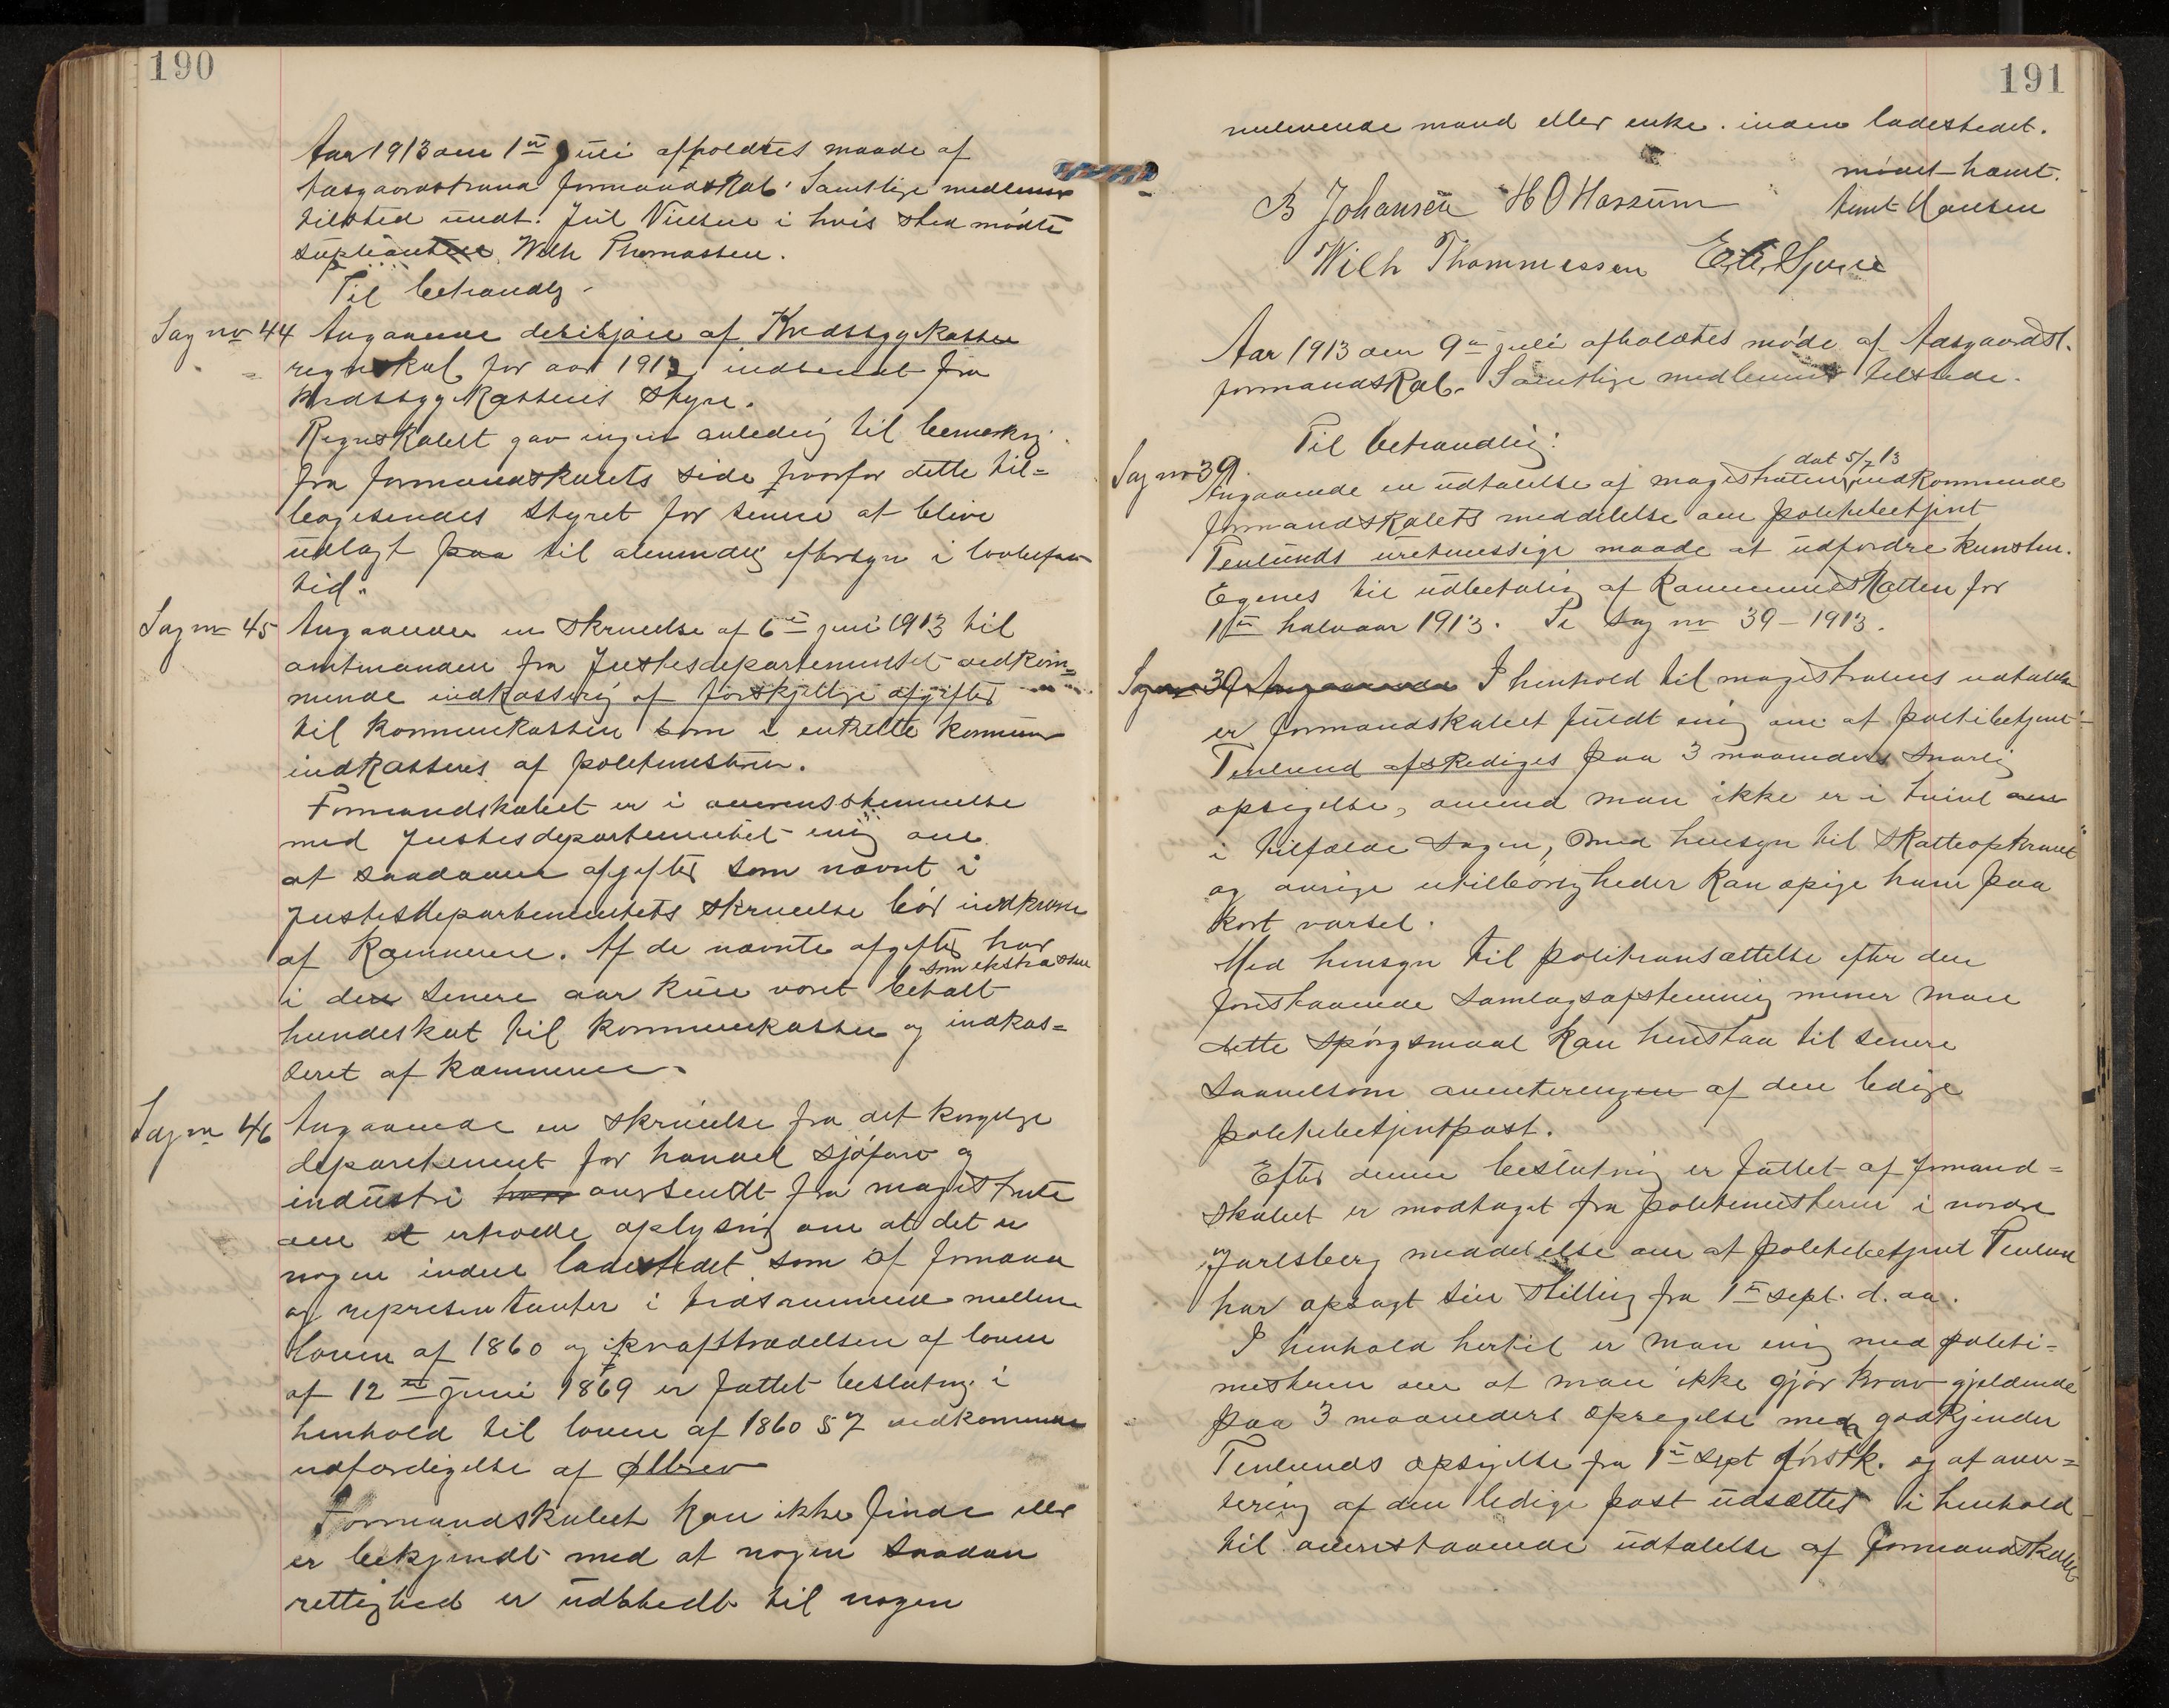 190
Aar 1913 den 1ste Juli afholdtes møde af
Aasgaardstrand formandskab. Samtlige medlemer
tilsted undt. Jul Nielsen i hvis sted mødte
suplianten Wilh Thomassen.
Til behandlg.
Sag no 44 Angaaende desisjon af Kredssygekassen
regnskab for aar 1912 indsendt fra
Kredssygekassens Styre.
Regnskabet gav ingen anledig til bemerkng.
fra formandskabets side hvorfor dette til=
bagesendes Styret for senere at blive
udlagt paa til almindlig eftersyn i lovbefalt
tid.
Sag no 45 Angaaende en Skrivelse af 6te juni 1913 til
amtmanden fra Justisdepartementet vedkom=
mende indkassering af forskjellige afgifter
til kommunekassen som i enkelte kommuner
indkasseres af politimesteren.
Formandskabet er i overensstemmelse
med Justisdepartementet enig om
at saadanne afgifter som nævnt i
Justisdepartementets Skrivelse bør indkræves
af Kæmneren. Af de nævnte afgifter har
i den senere aar kun været betalt som ekstra skat
hundeskat til kommunekassen og indkas=
seret af Kæmneren.
Sag no 46 Angaaende en skrivelse fra det kongelige
departement for handel sjøfart og
industri oversendt fra magistraten
om at erholde oplysning om at det er
nogen inden ladestedet som af formænd
og representanter i tidsrummet mellem
loven af 1860 og ikrafttrædelsen af loven
af 12te juni 1869 er fattet beslutng i
henhold til loven af 1860 § 7 vedkommende
udfærdigelse af ølbrev
Formandskabet kan ikke finde eller
er bekjendt med at nogen saadan
rettighed er udstedt til nogen
191
nulevende mand eller enke inden ladestedet.
mødet hævet.
B Johansen H O Hassum Anut Hansen
Wilh Thommessen
Aar 1913 den 9de juli afholdtes møde af Aasgaardst.
formandskab. Samtlige medlemmer tilstede.
Til behandlig:
Sag no 39.
dat 5/7 13
Angaaende en udtalelse af magistraten vedkommende
formandskabets meddelelse om politibetjent
Tenlunds uretmessige maade at udfordre kunstm.
Egenes til udbetaling af Kommuneskatten for
1ste halvaar 1913. Se Sag no 39 – 1913.
Sag no 39 Angaaende I henhold til magistratens udtalelse
er formandskabet fuldt enig om at politibetjent
Tenlund afskediges paa 3 maaneders snarlig
opsigelse, omend man ikke er i tvivl om
i tilfælde sagen, med hensyn til skatteopkravet
og øvrige utilbørligheder kan opsige ham paa
kort varsel.
Med hensyn til politiansættelse efter den
forestaaende Samlagsafstemnig mener man
dette spørgsmaal kan henstaa til senere
saavelsom averteringen af den ledige
politibetjentpost.
Efter denne beslutnig er fattet af formand=
skabet er modtaget fra politimesteren i nordre
Jarlsberg meddelelse om at politibetjent Tenlund
har opsagt sin stilling fra 1ste sept. d. aa.
I henhold hertil er man enig med politi=
mesteren om at man ikke gjør krav gjældende
paa 3 maaneders opsigelse men godkjender
Tenlunds opsigelse fra 1ste sept førstk. og at aver=
tering af den ledige post udsættes i henhold
til ovenstaaende udtalelse af formandskabet